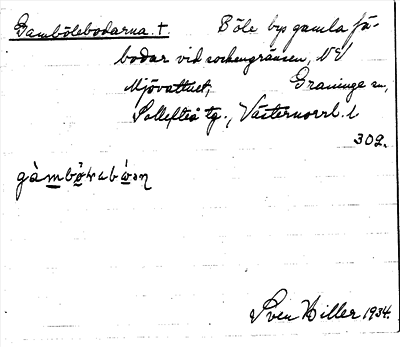 Gambölebodarna. †. Böle bys gamla fä-
bodar vid sockengränsen, NV
Mjövattnet, Graninge sn,
Sollefteå tg., Västernorrl. l
302.
Sven Hiller 1934.